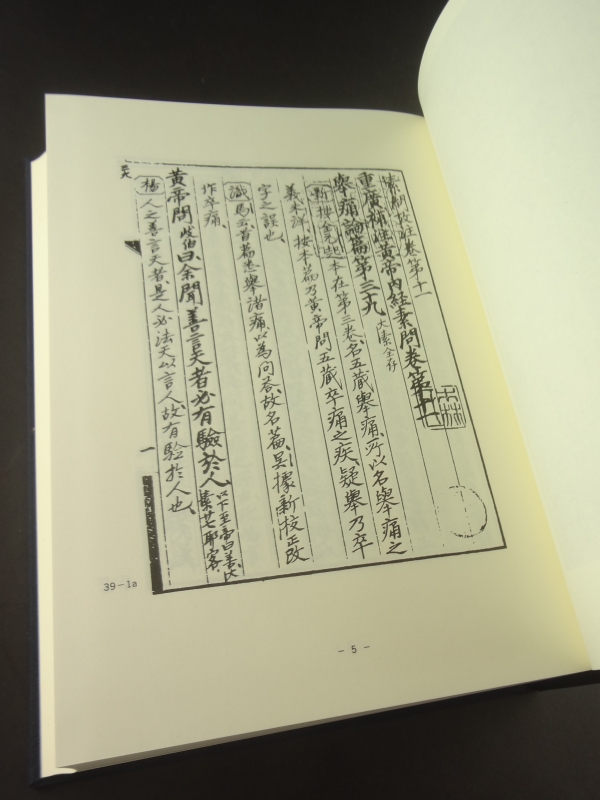 素問攷注卷第十一
重廣補註黃帝內經素問卷第十一
舉痛論篇第三十九 大素全存
新 挍金元起本在第三卷名五藏舉痛所以名舉痛之
義未詳按本篇乃黃帝問五藏卒痛之疾疑舉乃卒
字之誤也
識 馬云首篇悉舉諸痛以為問答故名篇吳據新校正改
作卒痛
黃帝問岐伯曰余聞善言天者必有驗於人 以下至帝曰善大
素芒耶客
楊 人之善言天者是人必法天以言人故有驗於人也
一
39-1a
- 5 -